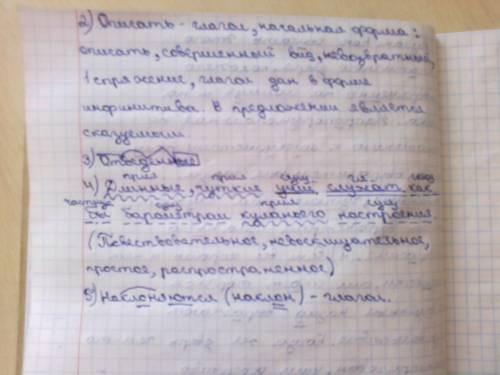 2) Описать - глагол, начальная форма:
описать, совершенный вид, невозвратный,
1 спряжение, глагол дан в форме
инфинитива. В предложении является
сказуемым.
3) Отведённые
прил прил сущ гл союз
4) Длинные, чуткие уши служат как
частица сущ прил сущ
бы барометром куланьего настроения.
(Повествовательное, невосклицательное,
простое, распространенное)
5) Наклоняются (наклон) - глагол.